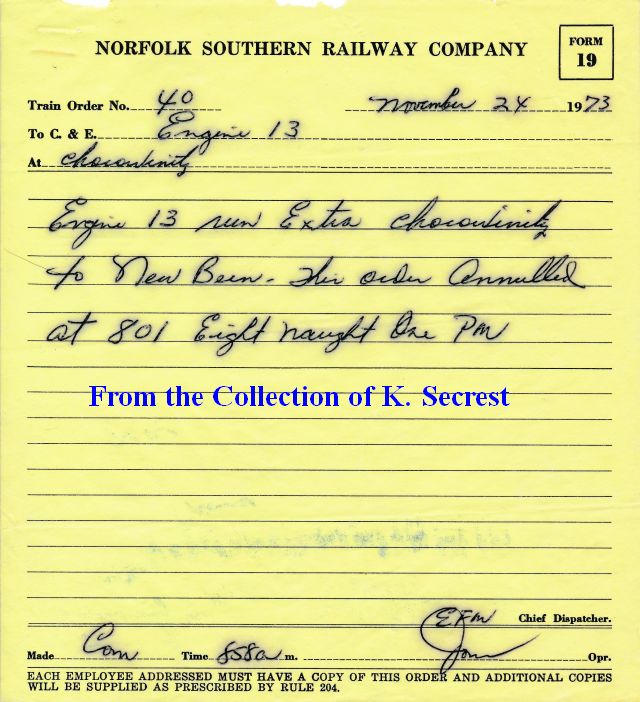 NORFOLK SOUTHERN RAILWAY COMPANY
FORM
19
Train Order No. 40 November 24 1973
To C. & E. Engine 13
At Chocowinity
Engine 13 run Extra Chocowinity
to New Bern - This order Annulled
at 801 Eight naught One PM
From the Collection of K. Secrest
EFM Chief Dispatcher.
Made Com Time 858a m. Opr.
EACH EMPLOYEE ADDRESSED MUST HAVE A COPY OF THIS ORDER AND ADDITIONAL COPIES
WILL BE SUPPLIED AS PRESCRIBED BY RULE 204.